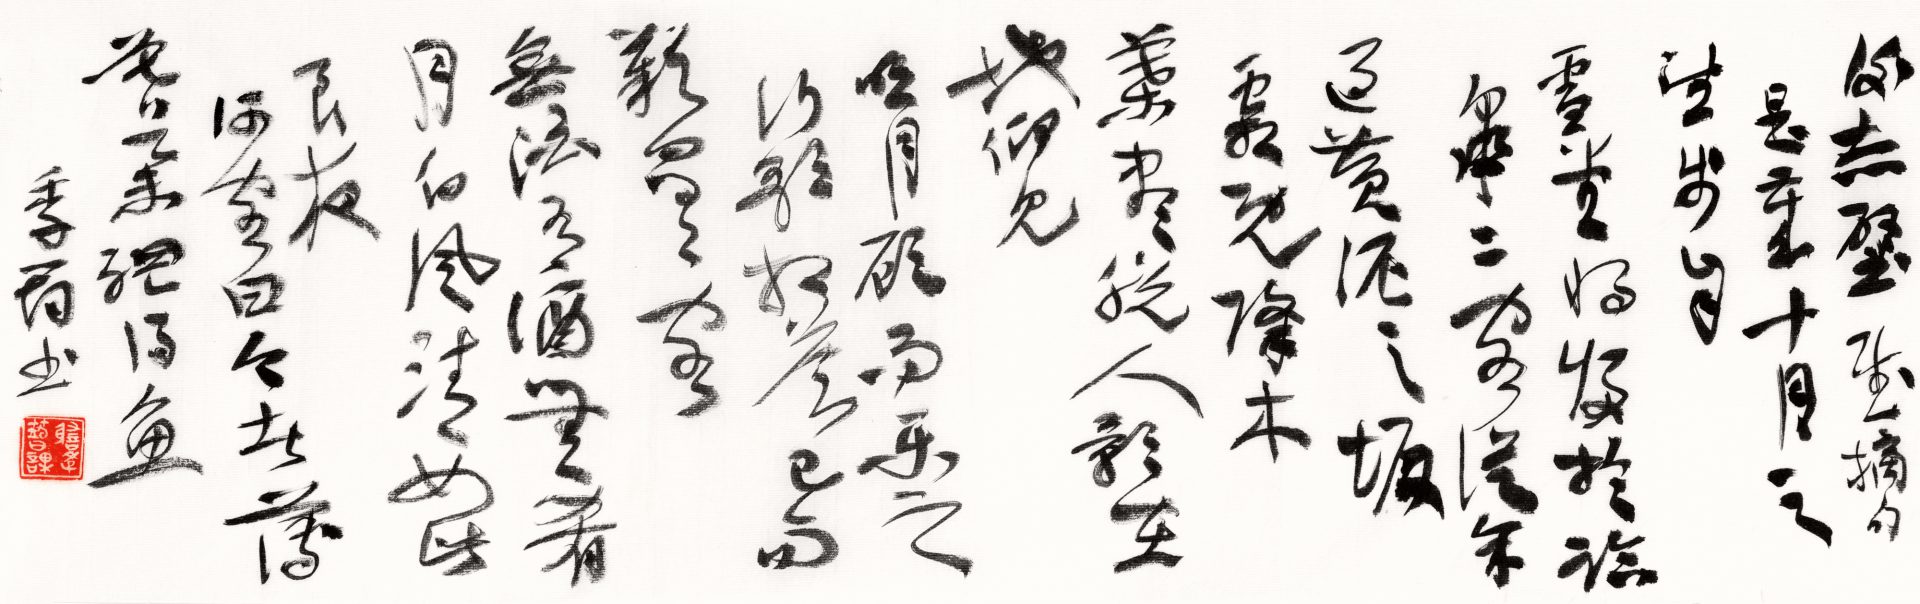 後赤壁賦摘句
是歲十月之
望步自
雪堂將歸於臨
皋二客從余
過黃泥之坂
露既降木
葉盡脫人影在
地仰見
明月顧而樂之
行歌相答已而
歎曰有客
無酒有酒無肴
月白風清如此
良夜
何客曰今者薄
暮舉網得魚
季 书